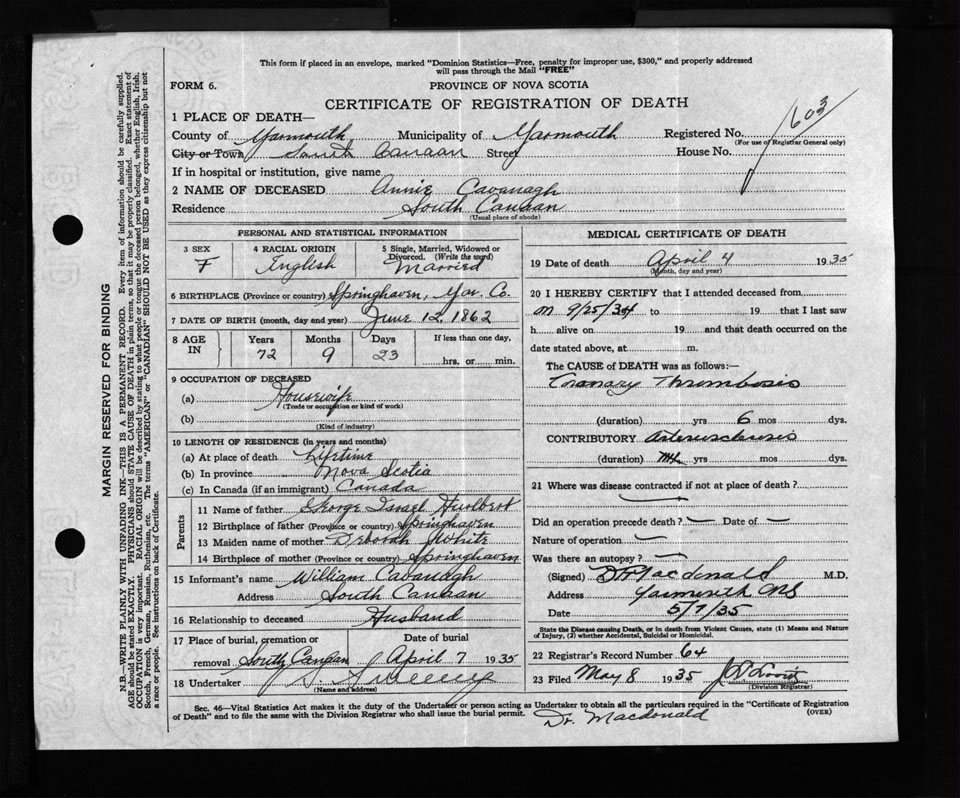 This form if placed in an envelope, marked "Dominion Statistics—Free, penalty for improper use, $300," and properly addressed
will pass through the Mail "FREE"
FORM 6.
PROVINCE OF NOVA SCOTIA
CERTIFICATE OF REGISTRATION OF DEATH
1 PLACE OF DEATH—
County of Yarmouth Municipality of Yarmouth Registered No. 603
(For use of Registrar General only)
City or Town South Canaan Street House No.
If in hospital or institution, give name
2 NAME OF DECEASED Annie Cavanagh
Residence South Canaan
(Usual place of abode)
PERSONAL AND STATISTICAL INFORMATION
3 SEX F
4 RACIAL ORIGIN English
5 Single, Married, Widowed or Divorced. (Write the word) Married
6 BIRTHPLACE (Province or country) Springhaven, Yar. Co.
7 DATE OF BIRTH (month, day and year) June 12, 1862
8 AGE IN Years 72 Months 9 Days 23 If less than one day, hrs. or min.
9 OCCUPATION OF DECEASED
(a) Housewife
(Trade or occupation or kind of work)
(b)
(Kind of industry)
10 LENGTH OF RESIDENCE (in years and months)
(a) At place of death Lifetime
(b) In province Nova Scotia
(c) In Canada (if an immigrant) Canada
Parents
11 Name of father George Israel Hurlbert
12 Birthplace of father (Province or country) Springhaven
13 Maiden name of mother Deborah White
14 Birthplace of mother (Province or country) Springhaven
15 Informant's name William Cavanagh
Address South Canaan
16 Relationship to deceased Husband
17 Place of burial, cremation or removal South Canaan Date of burial April 7 1935
18 Undertaker Sweeney
(Name and address)
MEDICAL CERTIFICATE OF DEATH
19 Date of death April 4 1935
(Month, day and year)
20 I HEREBY CERTIFY that I attended deceased from
on 9/25/34 to 19 that I last saw
h alive on 19 and that death occurred on
date stated above, at m.
The CAUSE of DEATH was as follows:—
Coronary Thrombosis
(duration) yrs 6 mos dys.
CONTRIBUTORY Arteriosclerosis
(duration) yrs mos dys.
21 Where was disease contracted if not at place of death?
Did an operation precede death? — Date of —
Nature of operation —
Was there an autopsy? —
(Signed) Macdonald M.D.
Address Yarmouth NS
Date 5/7/35
State the Disease causing Death, or in death from Violent Causes, state (1) Means and Nature
of Injury, (2) whether Accidental, Suicidal or Homicidal.
22 Registrar's Record Number 64
23 Filed May 8 1935
(Division Registrar)
Sec. 46—Vital Statistics Act makes it the duty of the Undertaker or person acting as Undertaker to obtain all the particulars required in the "Certificate of Registration
of Death" and to file the same with the Division Registrar who shall issue the burial permit.
(OVER)
Dr. Macdonald
MARGIN RESERVED FOR BINDING
N.B.—WRITE PLAINLY WITH UNFADING INK—THIS IS A PERMANENT RECORD. Every item of information should be carefully supplied.
AGE should be stated EXACTLY. PHYSICIANS should STATE CAUSE OF DEATH in plain terms, so that it may be properly classified. Exact statement of
OCCUPATION is very important. RACIAL ORIGIN will be described by stating to what people or tongue the deceased person belonged, whether English, Irish,
Scotch, French, German, Russian, Ruthenian, etc. The terms "AMERICAN" or "CANADIAN" SHOULD NOT BE USED as they express citizenship but not
a race or people. See instructions on back of Certificate.